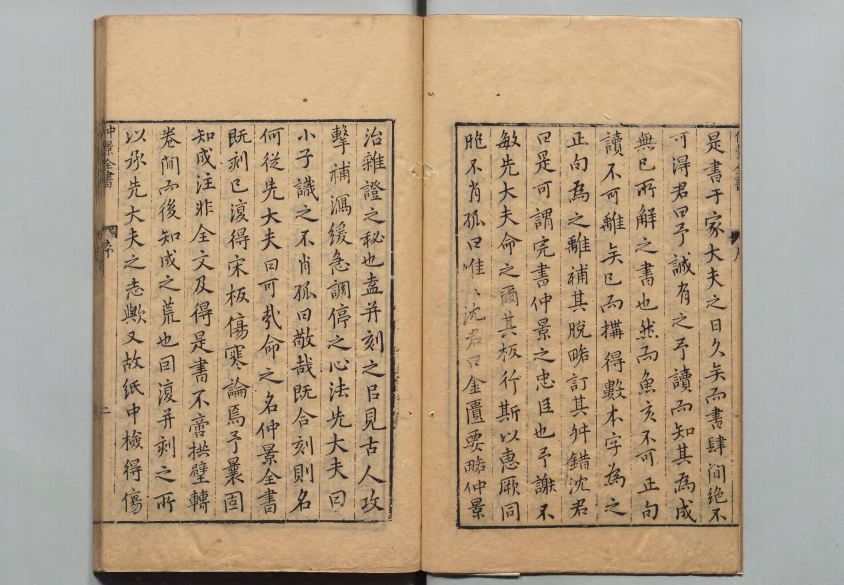 是書于家大夫之日久矣而書肆間絶不
可得君曰予誠有之予讀而知其為成
無已所解之書也然而魚亥不可正句
讀不可離矣已而搆得數本字為之
正句為之離補其脫略訂其舛錯沈君
曰是可謂完書仲景之忠臣也予謝不
敏先大夫命之爾其板行斯以惠厥同
胞不肖孤曰唯〻沈君曰金匱要略仲景
治雜證之秘也盍并刻之以見古人攻
擊補瀉緩急調停之心法先大夫曰
小子識之不肖孤曰敬哉既合刻則名
何從先大夫曰可哉命之名仲景全書
既刻已復得宋板傷寒論焉予曩固
知成注非全文及得是書不啻拱璧轉
卷間而後知成之荒也因復并刻之所
以承先大夫之志歟又故紙中檢得傷
仲景全書
序
二